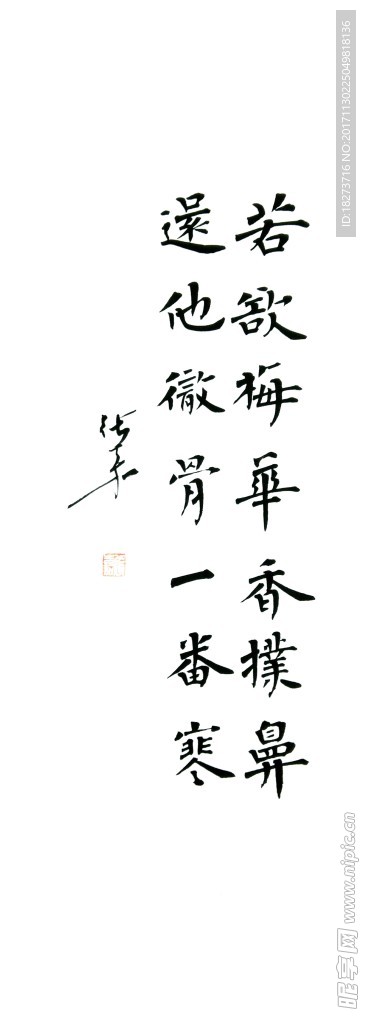 若欲梅華香撲鼻
還他徹骨一番寒
ID:18273716 NO:20171130225049818136
昵享网 www.nipic.cn